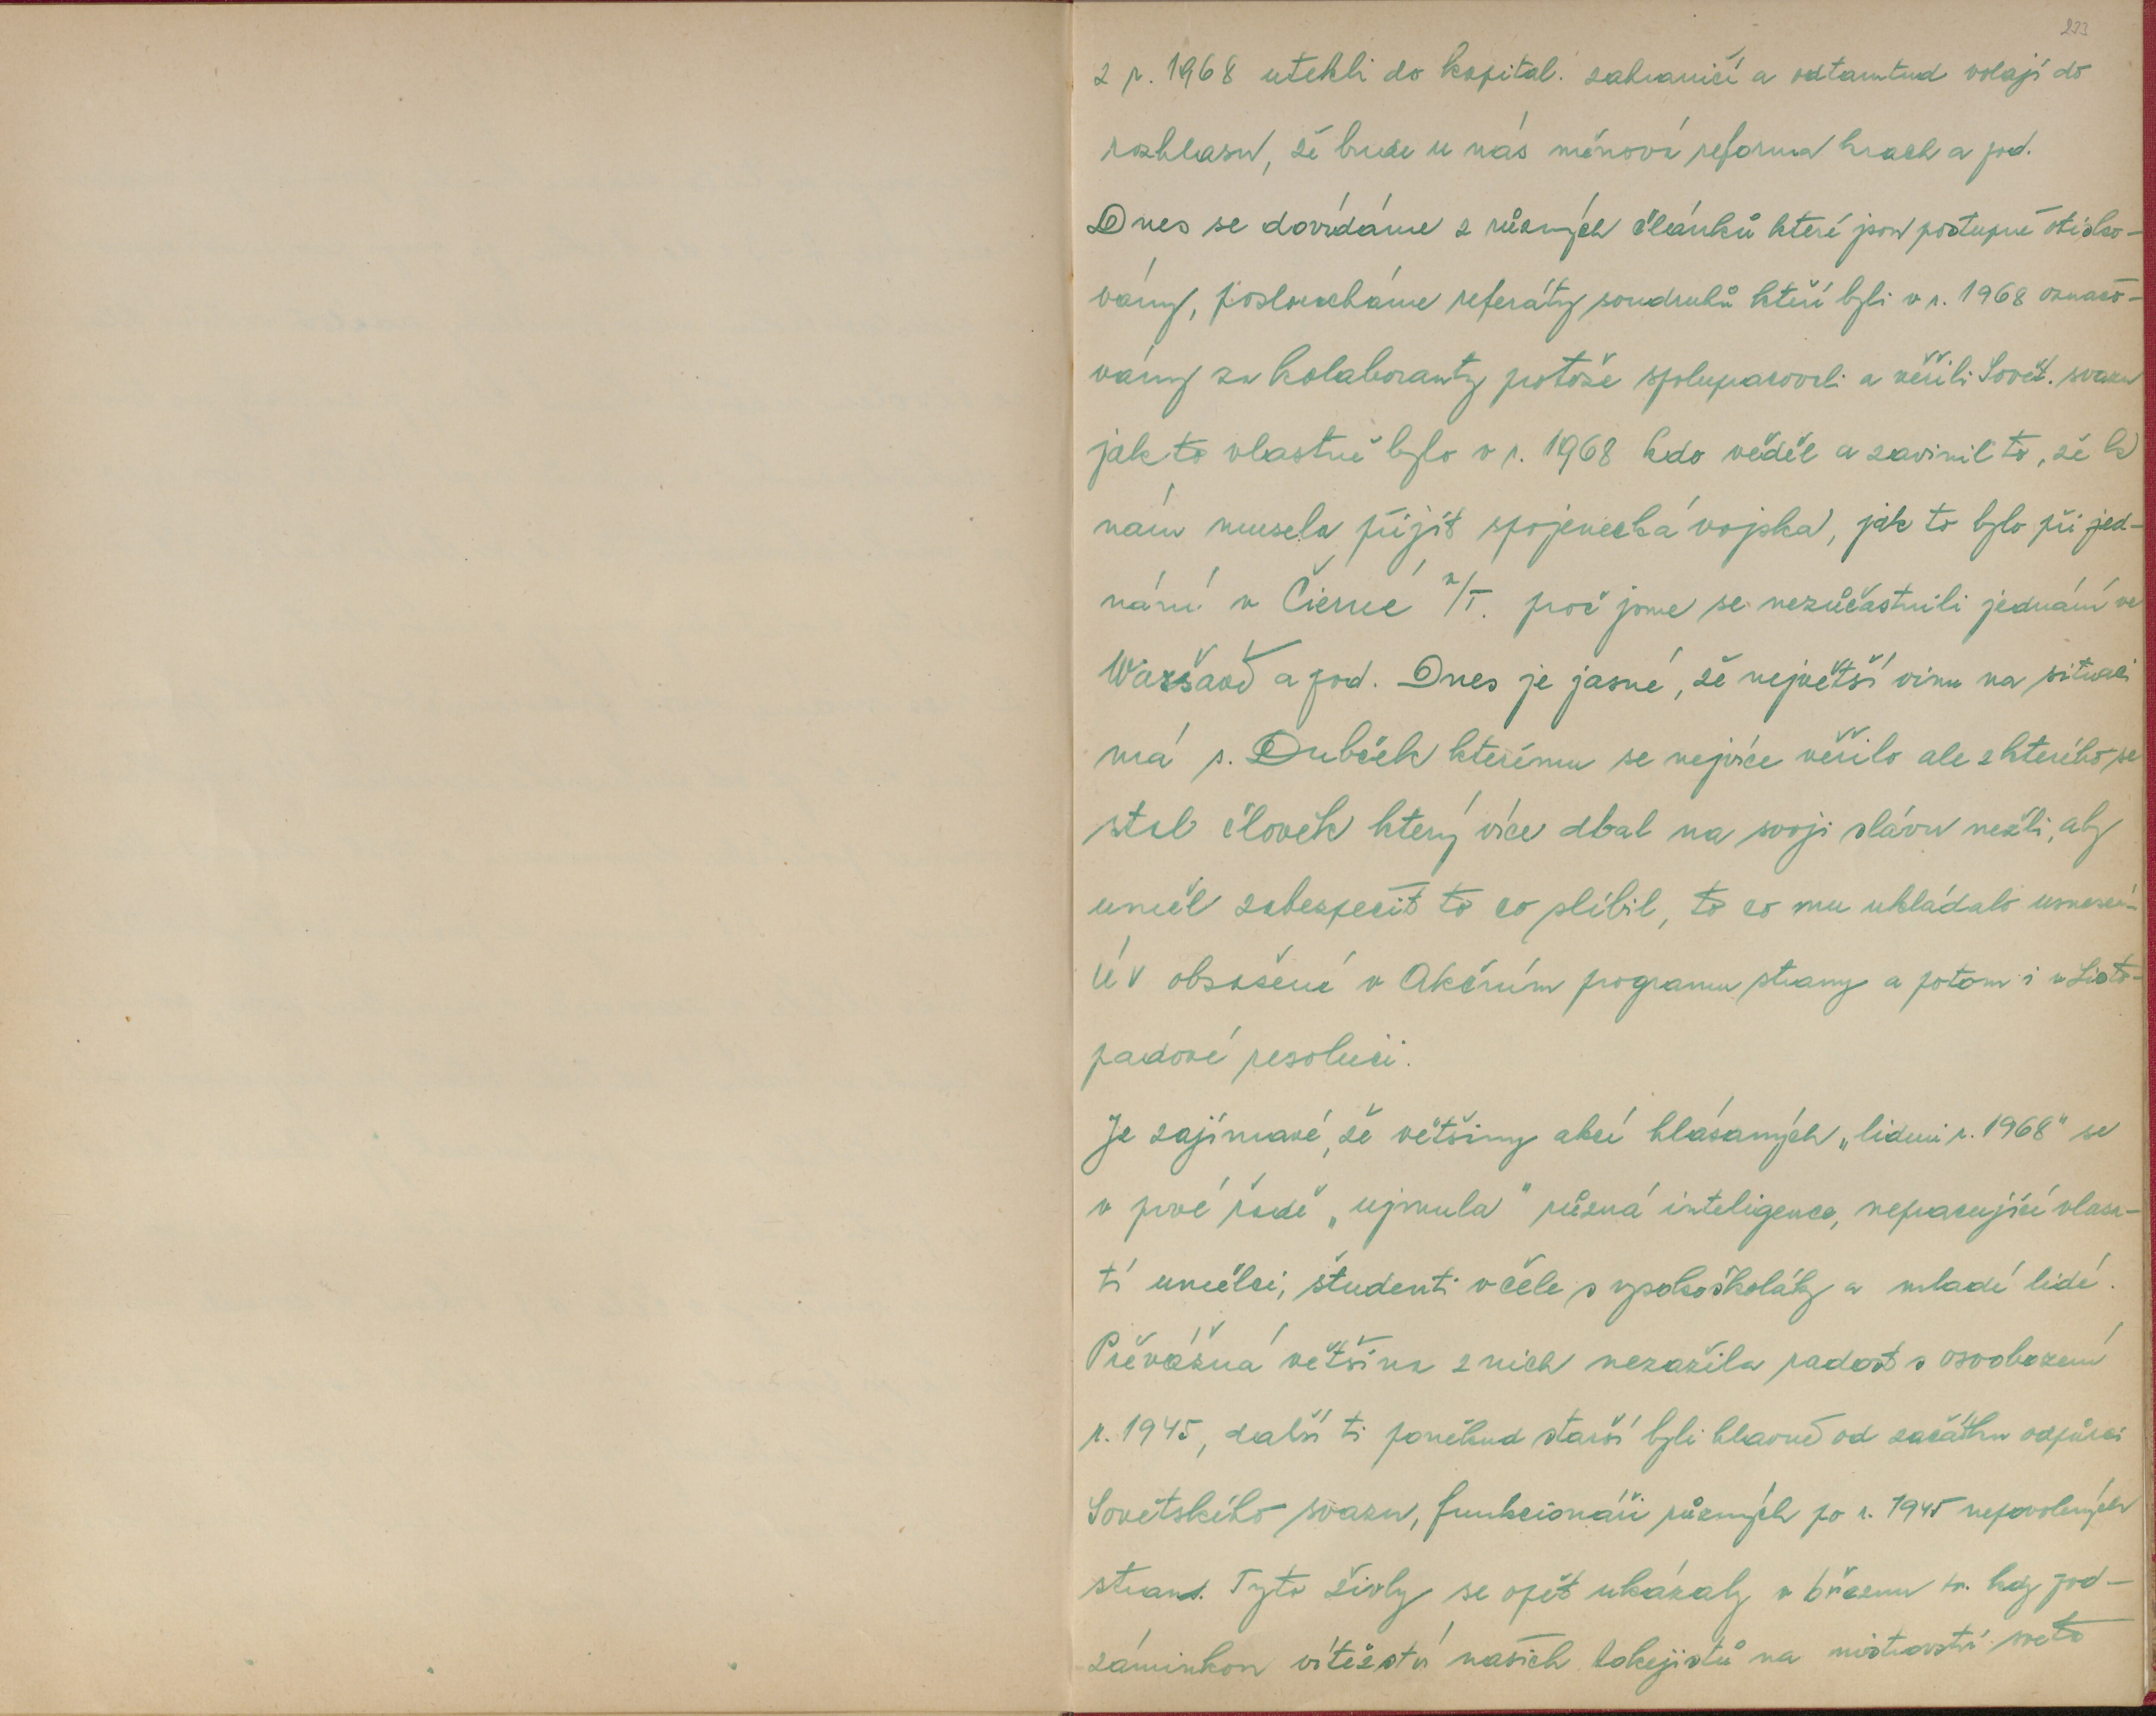 233
z r. 1968 utekli do kapital. zahraničí a odtamtud volají do
rozhlasu, že bude u nás měnová reforma krach a pod.
Dnes se dovídáme z různých článků které jsou postupně otisko-
vány, posloucháme referáty soudruhů kteří byli v r. 1968 označo-
vány za kolaboranty protože spolupracovali a věřili Sovět. svazu
jak to vlastně bylo v r. 1968 kdo věděl a zavinil to, že k
nám musela přijít spojenecká vojska, jak to bylo při jed-
nání v Čierné n/T. proč jsme se nezůčastnili jednání ve
Waršavě a pod. Dnes je jasné, že největší vinu na situaci
má s. Dubček kterému se nejvíce věřilo ale z kterého se
stal člověk který více dbal na svoji slávu nežli, aby
uměl zabezpečit to co slíbil, to co mu ukládalo usnesení
ÚV obsažené v Akčním programu strany a potom i v Listo-
padové resoluci.
Je zajímavé, že většiny akcí hlásaných „lidmi r. 1968" se
v prvé řadě „ujmula" různá inteligence, nepracující vlasa-
tí umělci, študenti v čele s vysokoškoláky a mladé lidé.
Převážná většina z nich nezažila radost s osvobození
r. 1945, další ti poněkud starší byli hlavně od začátku odpůrci
Sovětského svazu, funkcionáři různých po r. 1945 nepovolených
stran. Tyto živly se opět ukázaly v březnu t.r. kdy pod-
záminkou vítězství našich hokejistů na mistrovství světa